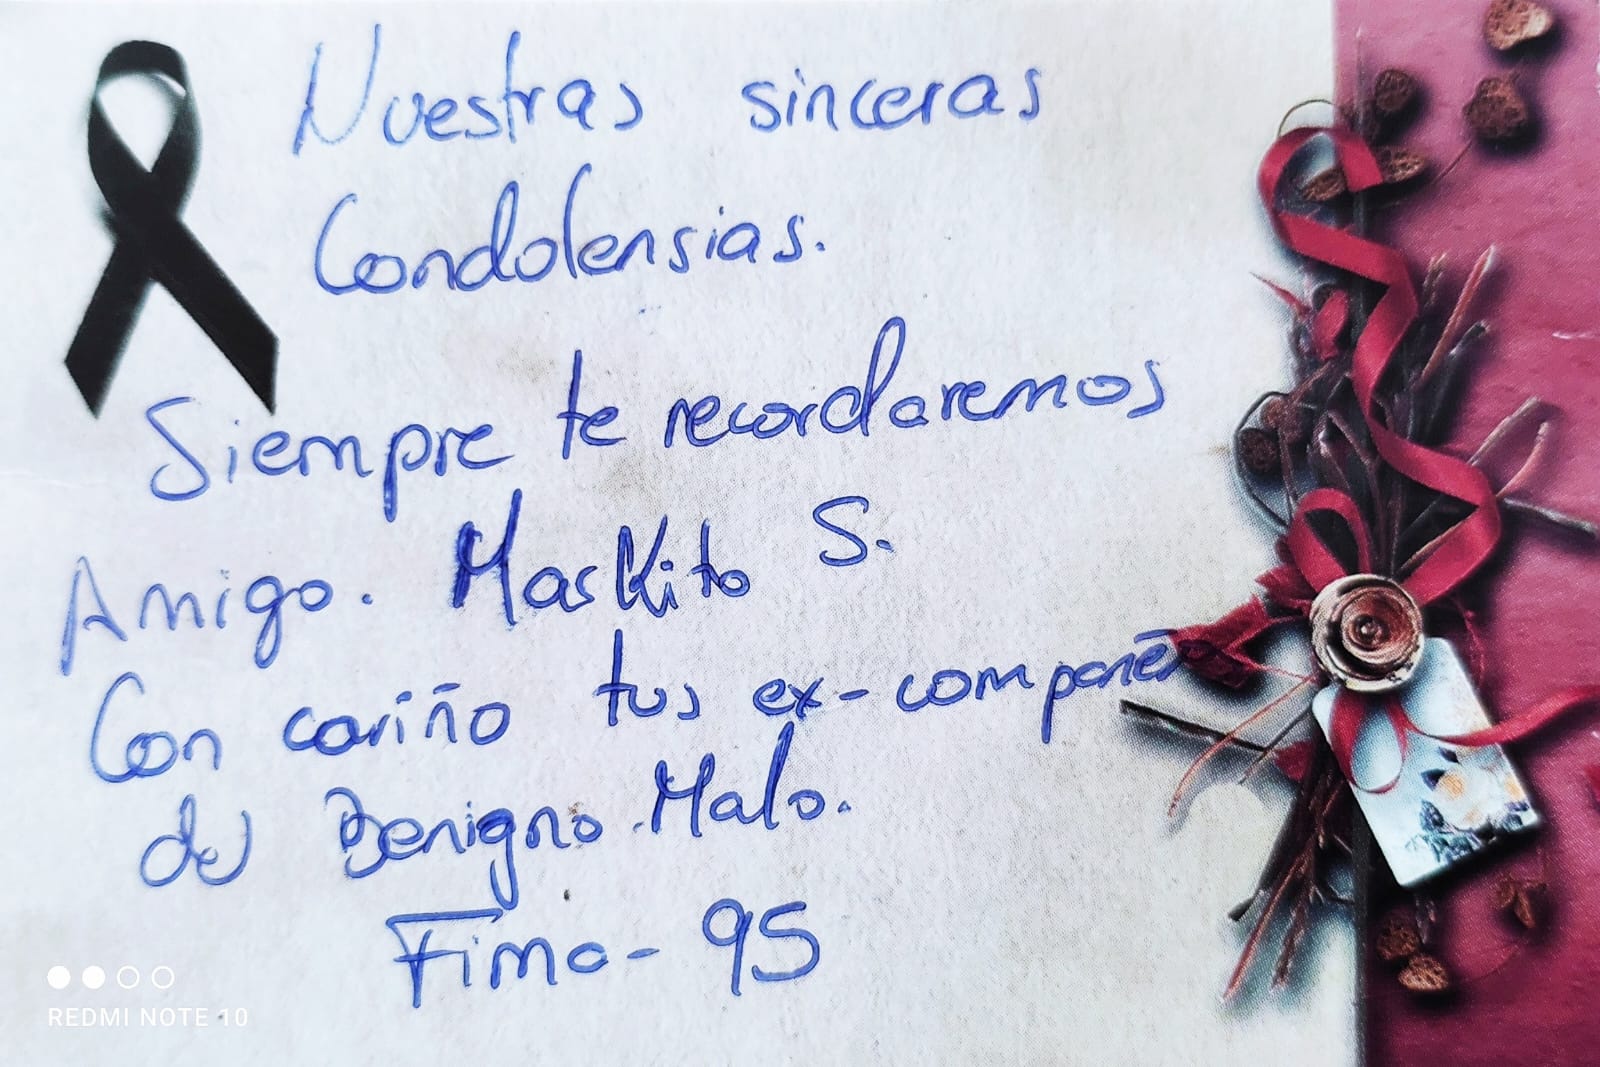 Nuestras sinceras
Condolensias.
Siempre te recordaremos
Amigo. Maskito S.
Con cariño tus ex-compañer
del Benigno Malo.
Fima-95
REDMI NOTE 10